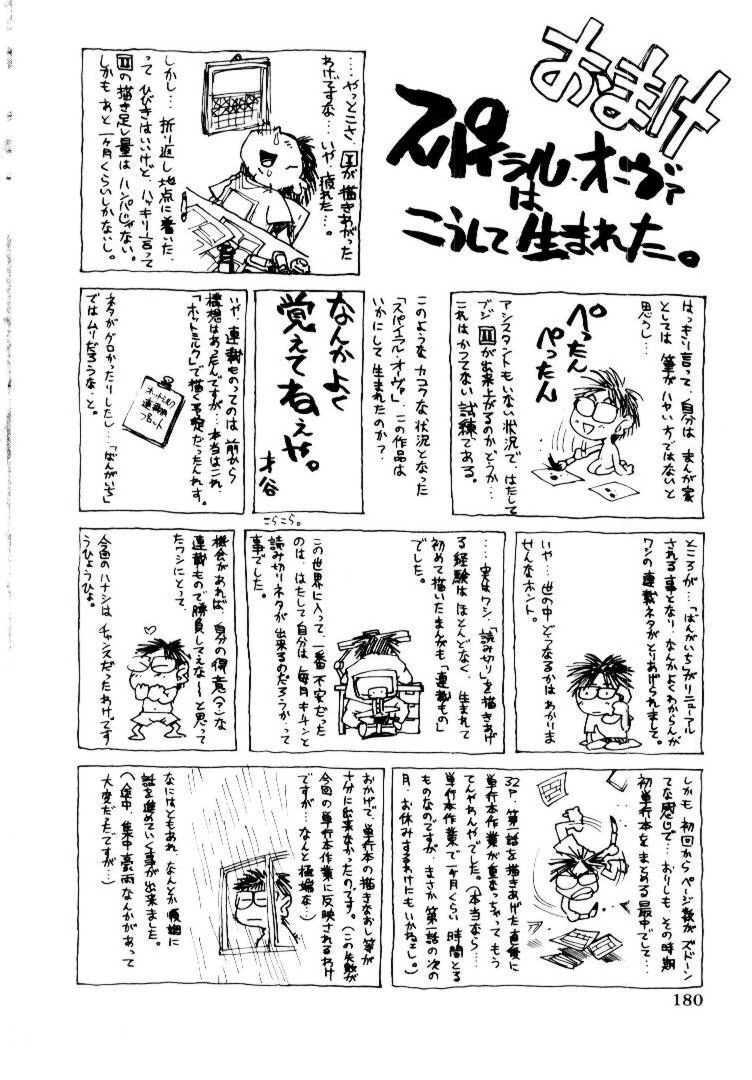 おまけ
スパイラル・オーヴァ
は
こうして生まれた。
……やっとこさ、Ⅰが描きあがった
わけですな…いや、疲れた…。
しかし…折り返し地点に着いた、
ってひびきはいいけど、ハッキリ言って
Ⅱの描き足し量はハンパじゃない。
しかもあと一ヶ月くらいしかないし。
はっきり言って、自分は、まんが家
としては筆がハヤい方ではないと
思うし…
ぺったん
ぺったん
アシスタントもいない状況で、はたして
ブジⅡが出来上がるのかどうか…
これはかつてない試練である。
このようなカコクな状況となった
「スパイラル・オーヴァ」、この作品は
いかにして生まれたのか?
なんかよく
覚えてねぇや。
才谷
こらこら。
いや、連載ものってのは前から
構想はあったんですが…本当はこれ、
「ホットミルク」で描く予定だったんれす。
ホットミルク
連載用
プロット
ネタがゲロかったりしたし…「ばんがいち」
ではムリだろうな、と。
ところが…「ばんがいち」がリニューアル
される事となり、なんかよくわからんが
ワシの連載ネタがとりあげられました。
いや…世の中どうなるかはわかりま
せんなホント。
……実はワシ、「読み切り」を描きあげ
る経験はほとんどなく、生まれて
初めて描いたまんがも「連載もの」
でした。
この世界に入って、一番不安だった
のは、はたして自分は毎月キチンと
読み切りネタが出来るのだろうかって
事でした。
機会があれば、自分の得意(?)な
連載もので勝負してえな〜と思って
たワシにとって、
今回のハナシはチャンスだったわけです
うひょうひょ。
しかも初回からページ数がズドーン
てな感じで…おりしもその時期
初単行本をまとめる最中でして…
32P、第一話を描きあげた直後に
単行本作業が重なっちゃってもう
てんやわんやでした。(本当なら…
単行本作業で一ヶ月くらい時間とる
ものなのですが、まさか第一話の次の
月、お休みするわけにもいかねェし。)
おかげで、単行本の描きなおし等が
十分に出来なかったのです。(この失敗が
今回の単行本作業に反映されるわけ
ですが…なんと極端な…)
なにはともあれ、なんとか順調に
話を進めていく事が出来ました。
(途中、集中豪雨なんかがあって
大変だったですが…)
180